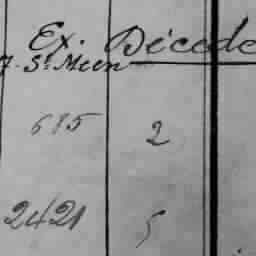 Ex. Décade
7. St Meen
615 2
2421 5